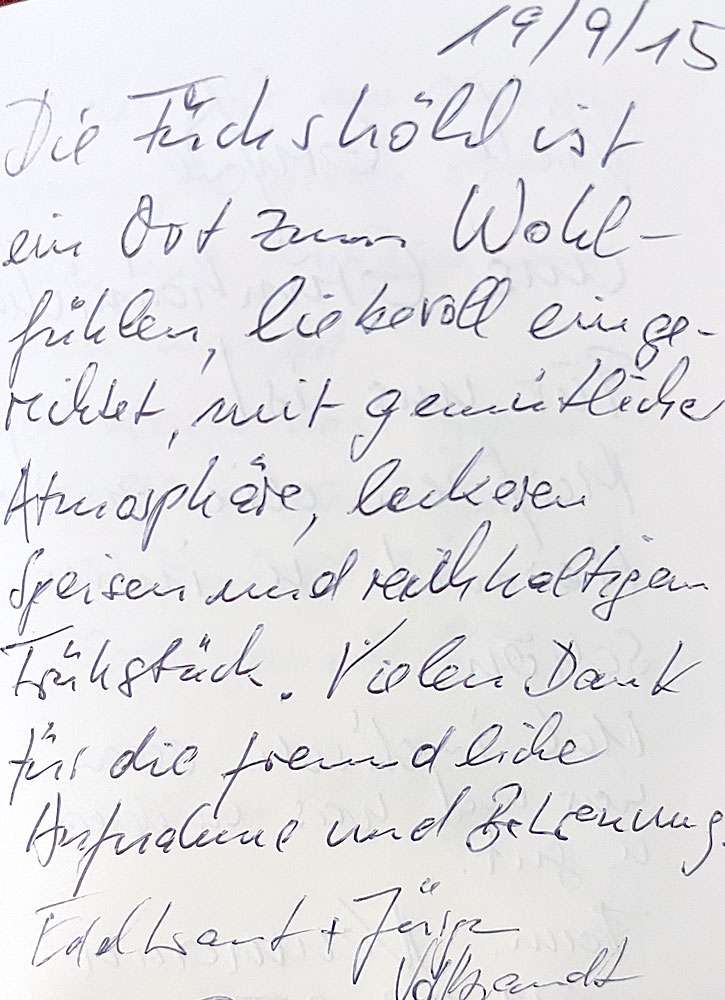 19/9/15
Die Fuchshöhl ist
ein Ort zum Wohl-
fühlen, liebevoll einge-
richtet, mit gemütlicher
Atmosphäre, leckeren
Speisen und reichhaltigem
Frühstück. Vielen Dank
für die freundliche
Aufnahme und Betreuung.
Edeltraut + Jürgen